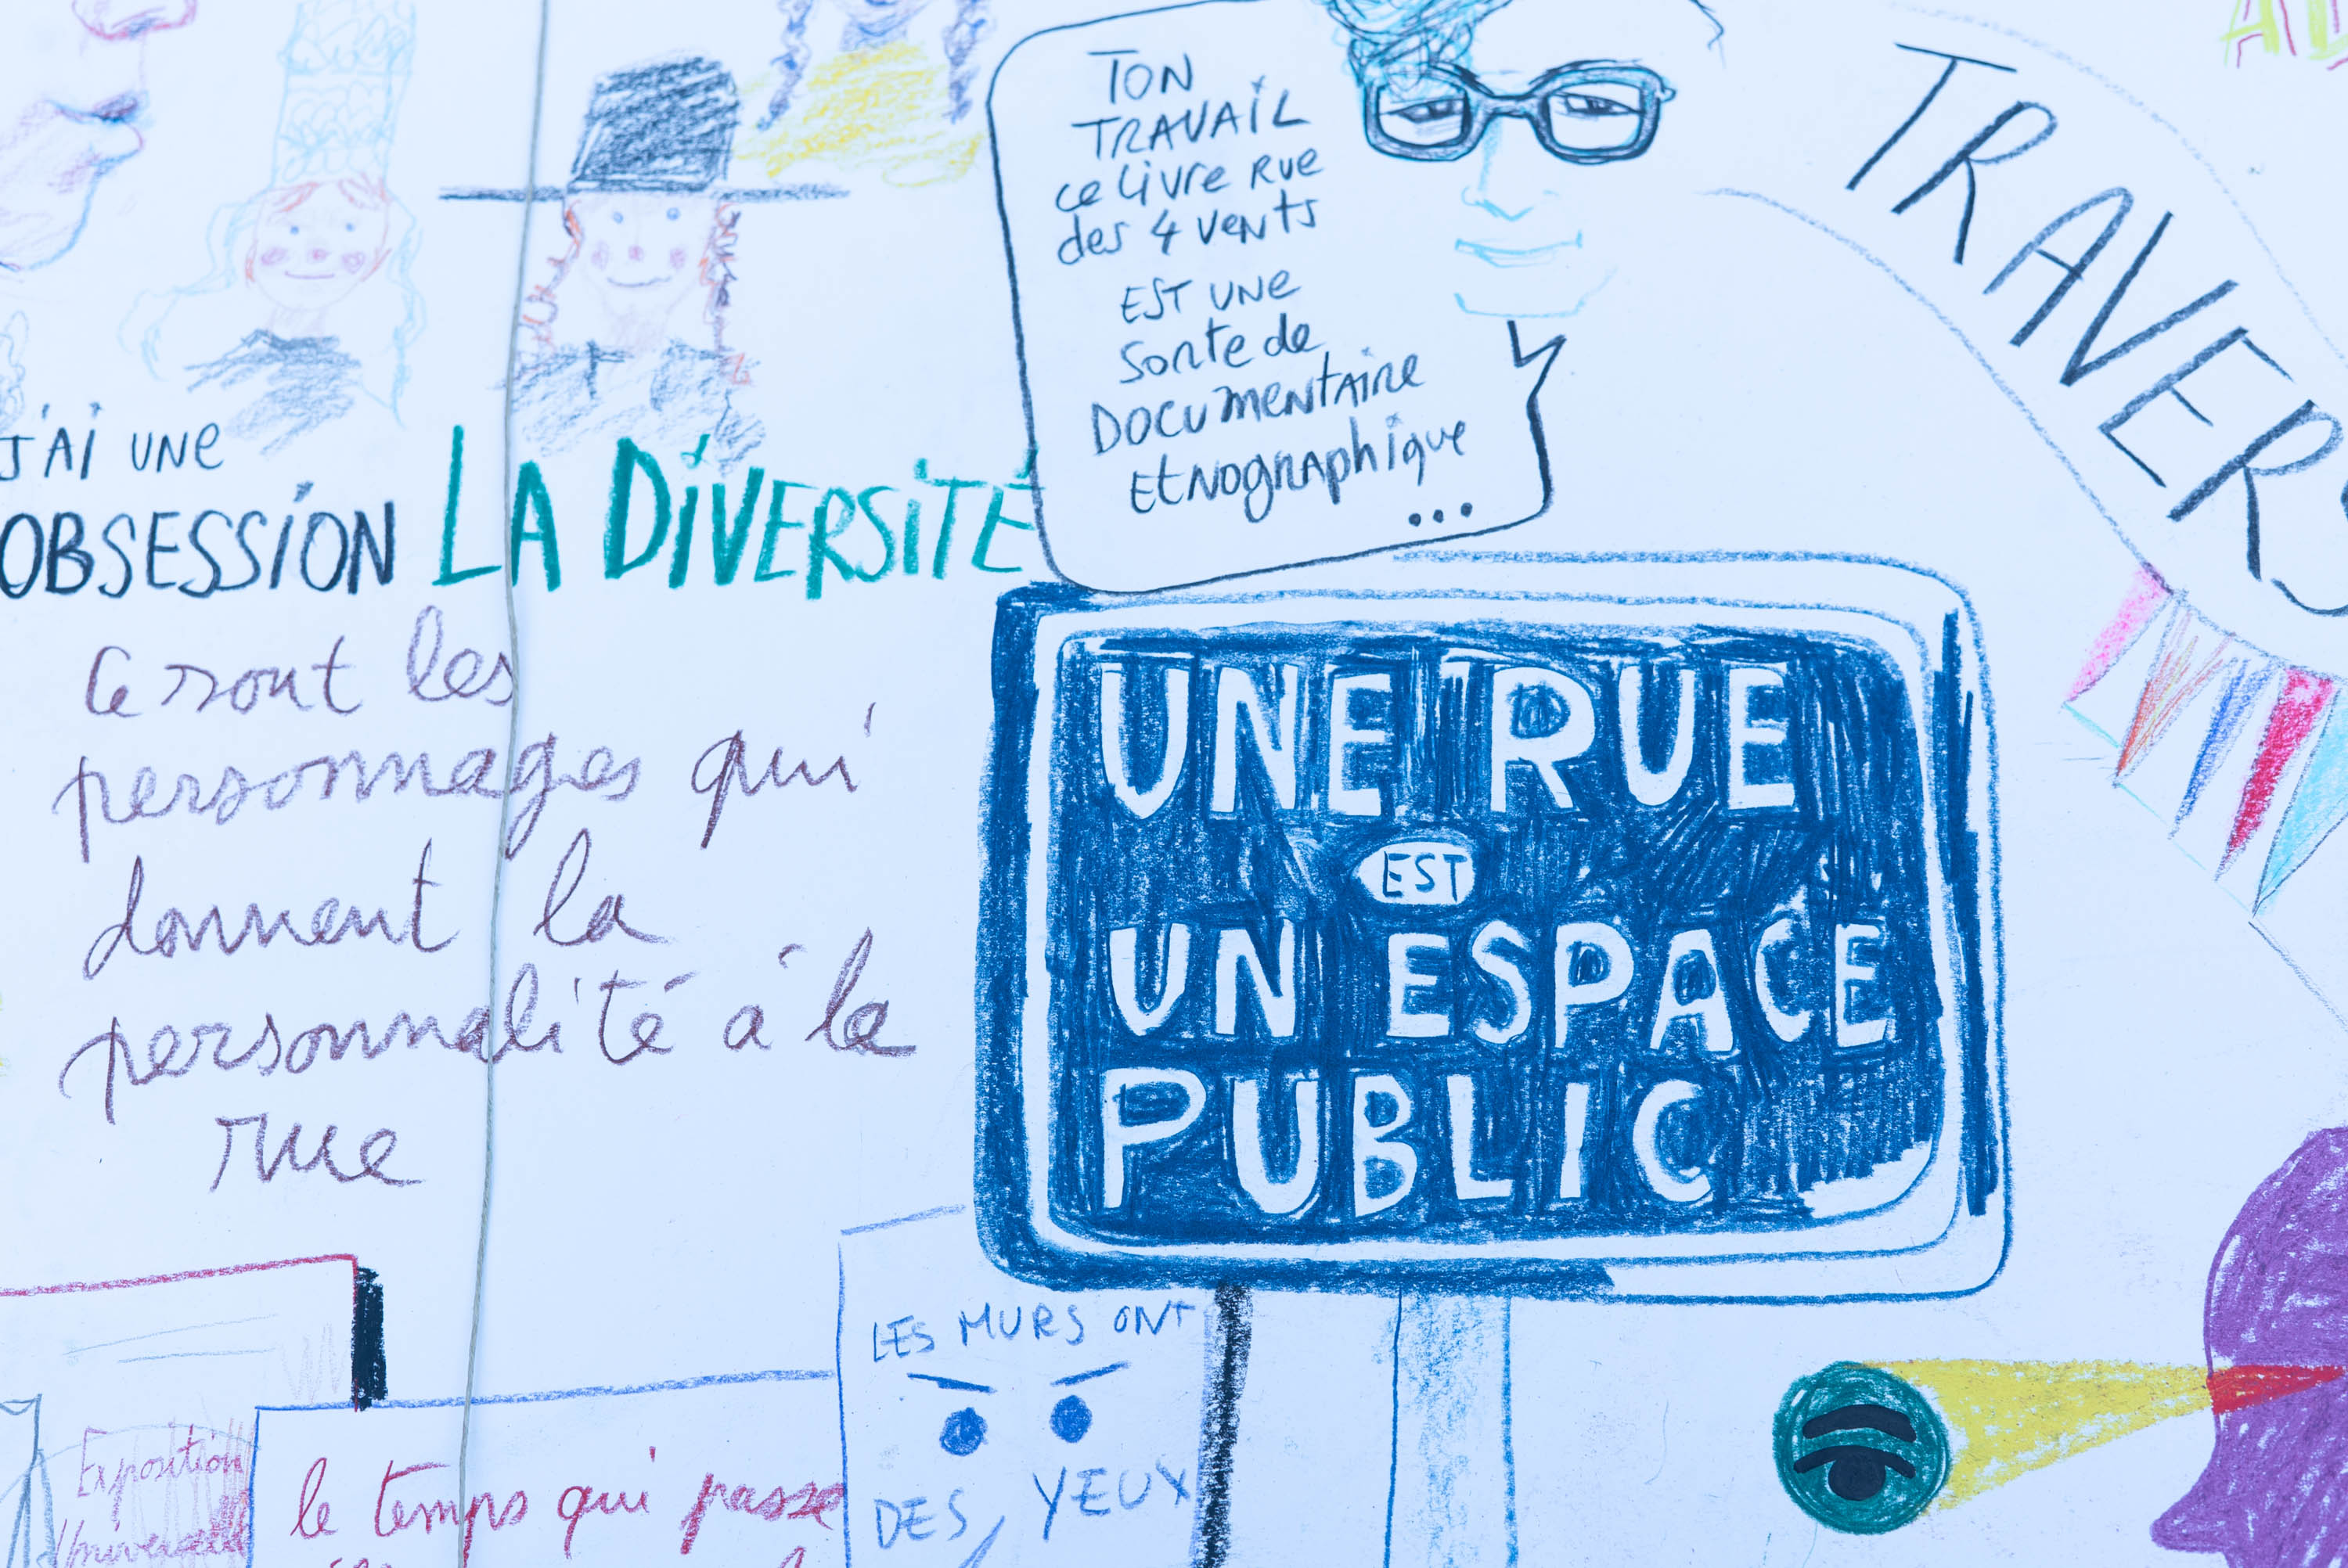 TON
TRAVAIL
ce Livre RUE
des 4 vents
EST UNE
sorte de
DOCUMENTAIRE
EtNOGRAPhique
...
TRAVERS
J'Ai UNE
OBSESSION LA DIVERSITÉ
Ce sont les
personnages qui
donnent la
personnalité à la
rue
UNE RUE
EST
UN ESPACE
PUBLIC
LES MURS ONT
DES YEUX
Exposition
Universelle
le temps qui passe